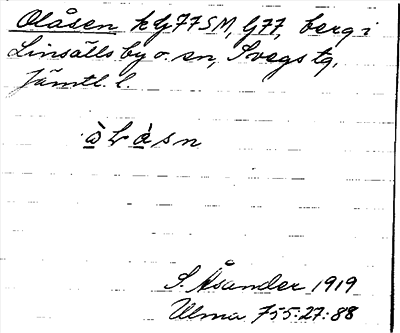 Olåsen kG77SM, G77, berg i
Linsälls by o. sn, Svegs tg,
Jämtl. l.
S. Åsander 1919
Ulma 755:27:88